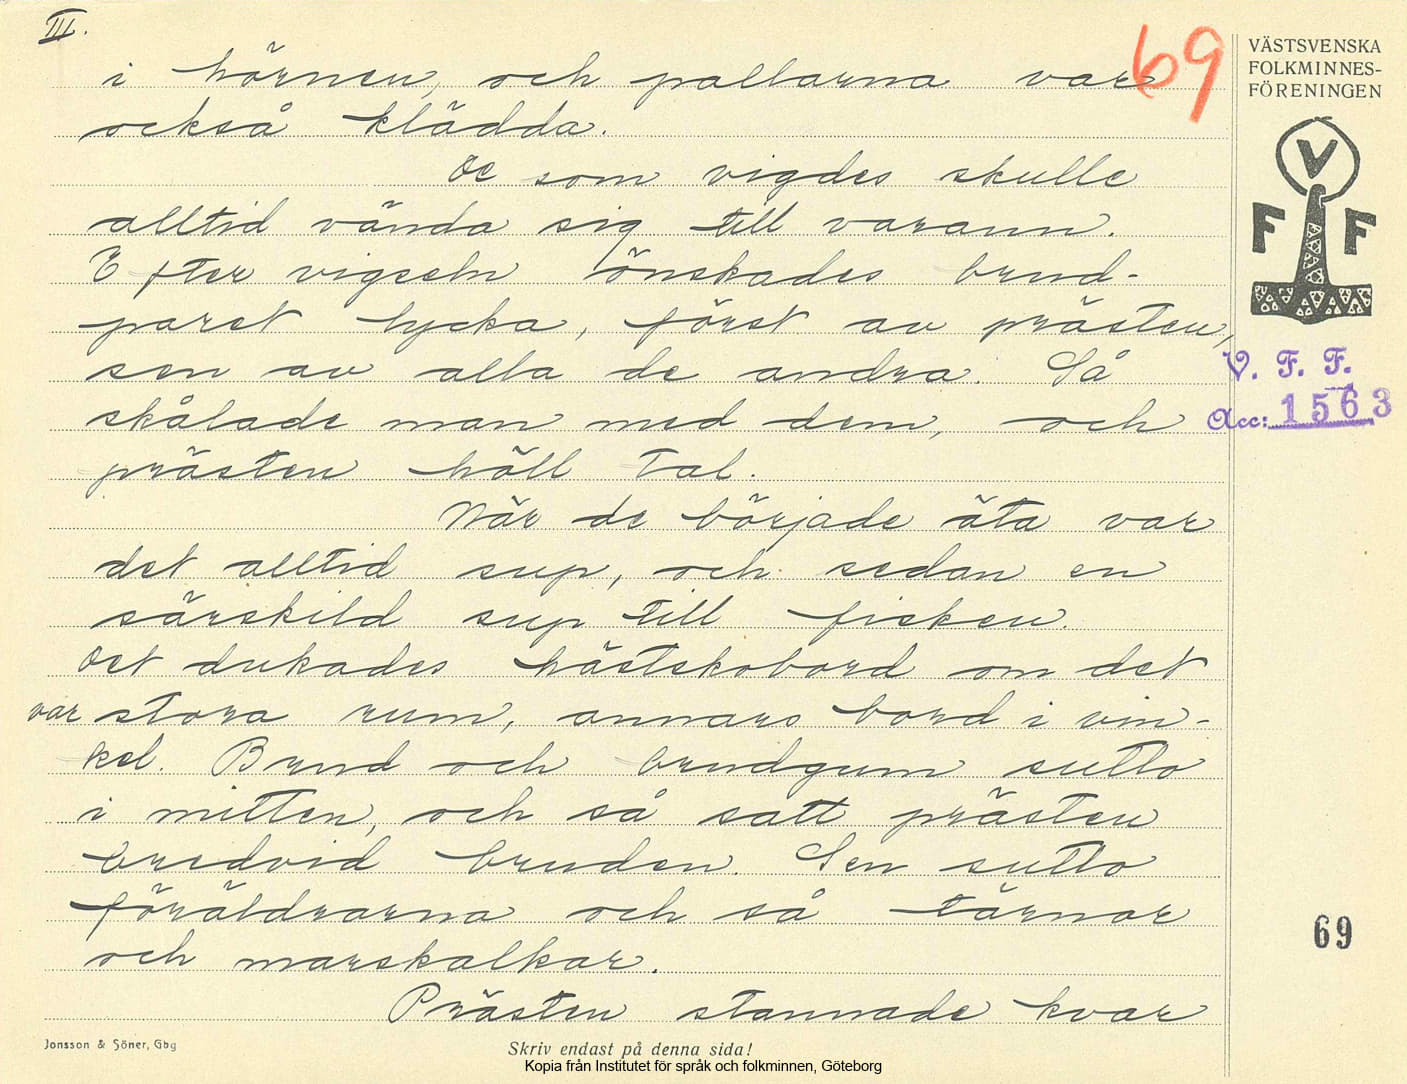 III.
69
VÄSTSVENSKA
FOLKMINNES-
FÖRENINGEN
V
F F
V. F. F.
Acc: 1563
i hörnen, och pallarna var
också klädda.
De som vigdes skulle
alltid vända sig till varann.
Efter vigseln önskades brud-
paret lycka, först av prästen,
sen av alla de andra. Så
skålade man med dem, och
prästen höll tal.
När de började äta var
det alltid sup, och sedan en
särskild sup till fisken.
Det dukades hästskobord om det
var stora rum, annars bord i vin-
kel. Brud och brudgum sutto
i mitten, och så satt prästen
bredvid bruden. Sen sutto
föräldrarna och så tärnor
och marskalkar.
Prästen stannade kvar
69
Jonsson & Söner, Gbg
Skriv endast på denna sida!
Kopia från Institutet för språk och folkminnen, Göteborg